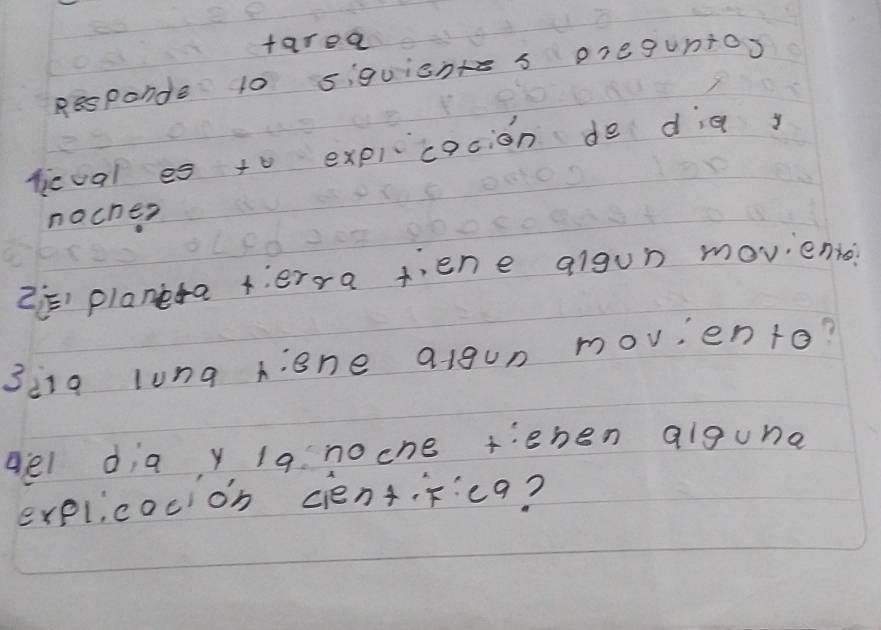 tarea
Responde lo siguientes preguntas
1¿cual es tu explicación de dia y
noche?
2¿El planeta tierra tiene algun moviento?
3¿la luna tiene algun moviento?
4¿el dia y la noche tienen alguna
explicación cientifica?